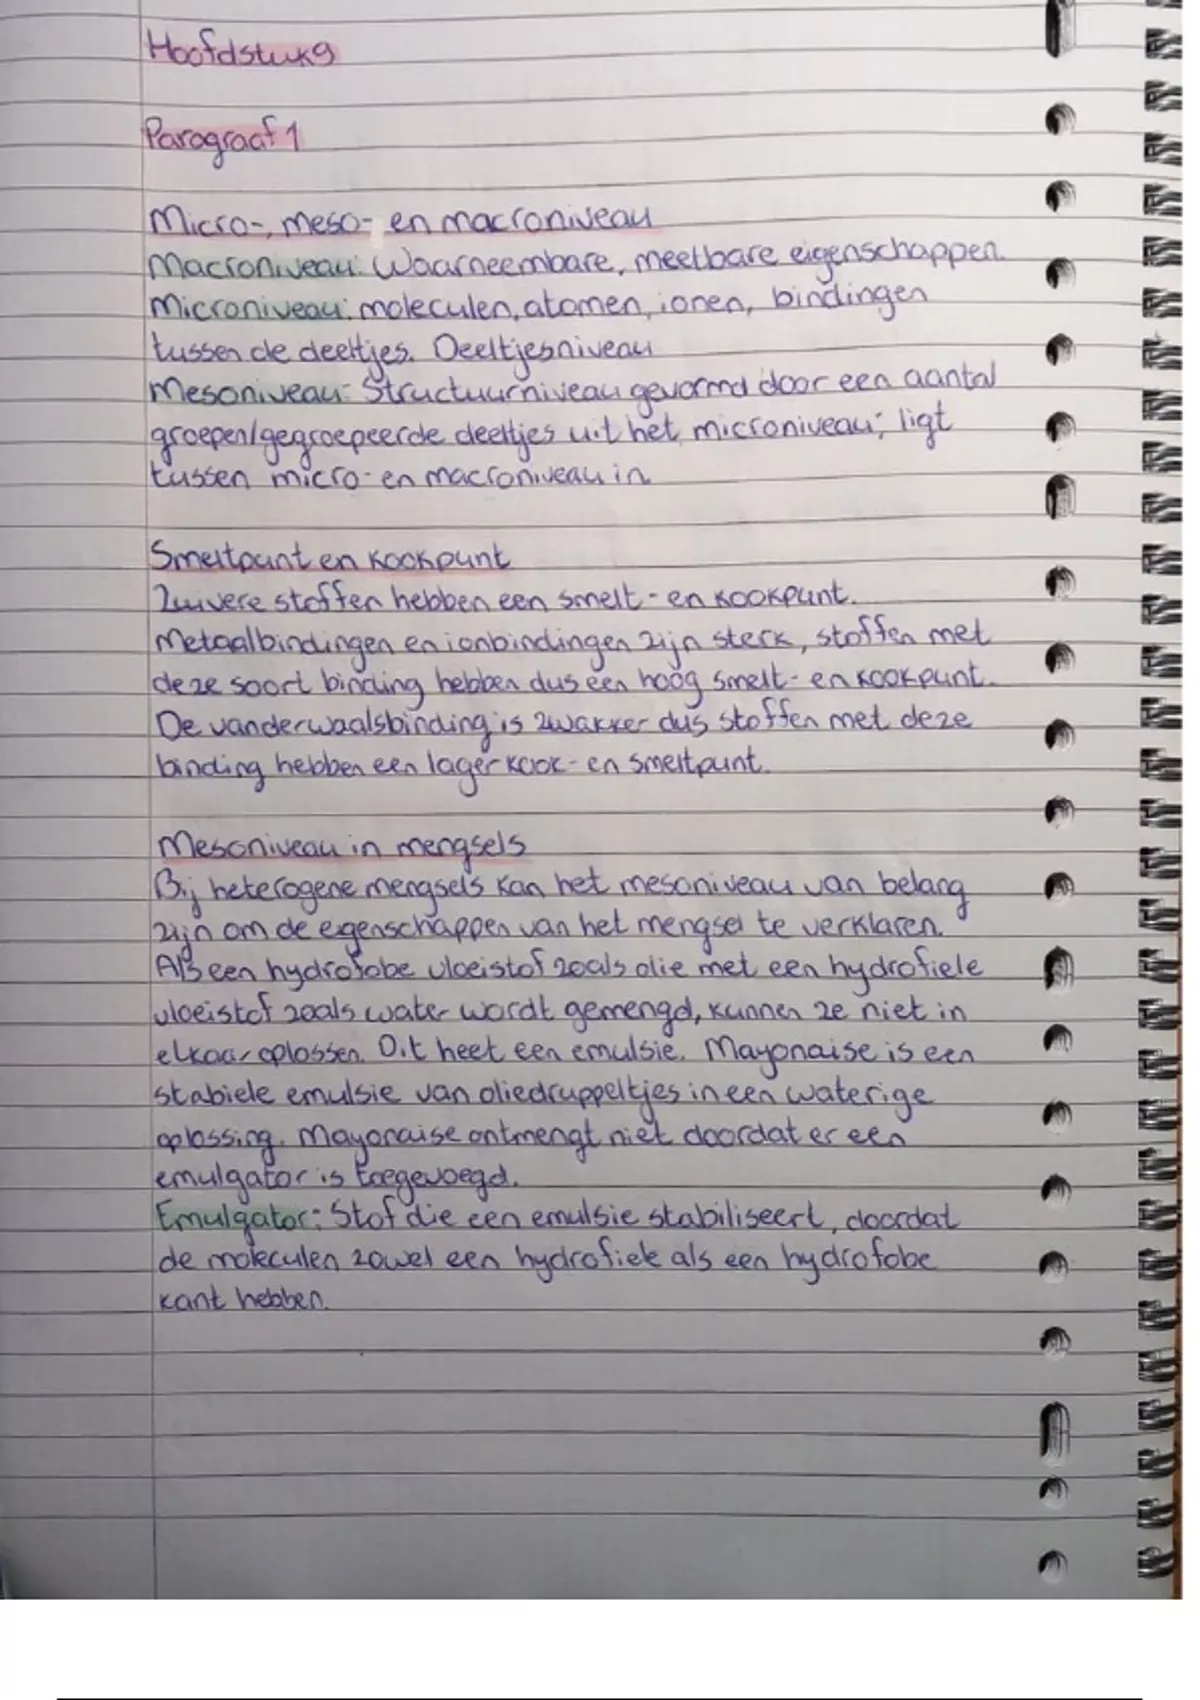 Hoofdstuk 9
Paragraaf 1
Micro-, meso- en macroniveau
Macroniveau: Waarneembare, meetbare eigenschappen.
Microniveau: moleculen, atomen, ionen, bindingen
tussen de deeltjes. Deeltjesniveau
Mesoniveau: Structuurniveau gevormd door een aantal
groepen/gegroepeerde deeltjes uit het microniveau; ligt
tussen micro- en macroniveau in
Smeltpunt en kookpunt
Zuivere stoffen hebben een smelt- en kookpunt.
Metaalbindingen en ionbindingen zijn sterk, stoffen met
deze soort binding hebben dus een hoog smelt- en kookpunt.
De vanderwaalsbinding is zwakker dus stoffen met deze
binding hebben een lager kook- en smeltpunt.
Mesoniveau in mengsels
Bij heterogene mengsels kan het mesoniveau van belang
zijn om de eigenschappen van het mengsel te verklaren.
Als een hydrofobe vloeistof zoals olie met een hydrofiele
vloeistof zoals water wordt gemengd, kunnen ze niet in
elkaar oplossen. Dit heet een emulsie. Mayonaise is een
stabiele emulsie van oliedruppeltjes in een waterige
oplossing. Mayonaise ontmengt niet doordat er een
emulgator is toegevoegd.
Emulgator: Stof die een emulsie stabiliseert, doordat
de moleculen zowel een hydrofiele als een hydrofobe
kant hebben.